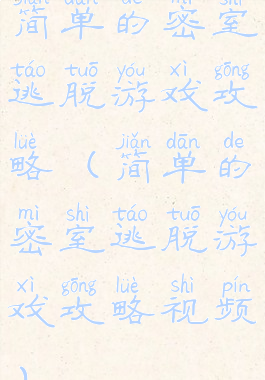 jiǎn dān de mì shì
简单的密室
táo tuō yóu xì gōng
逃脱游戏攻
lüè jiǎn dān de
略(简单的
mì shì táo tuō yóu
密室逃脱游
xì gōng lüè shì pín
戏攻略视频
)